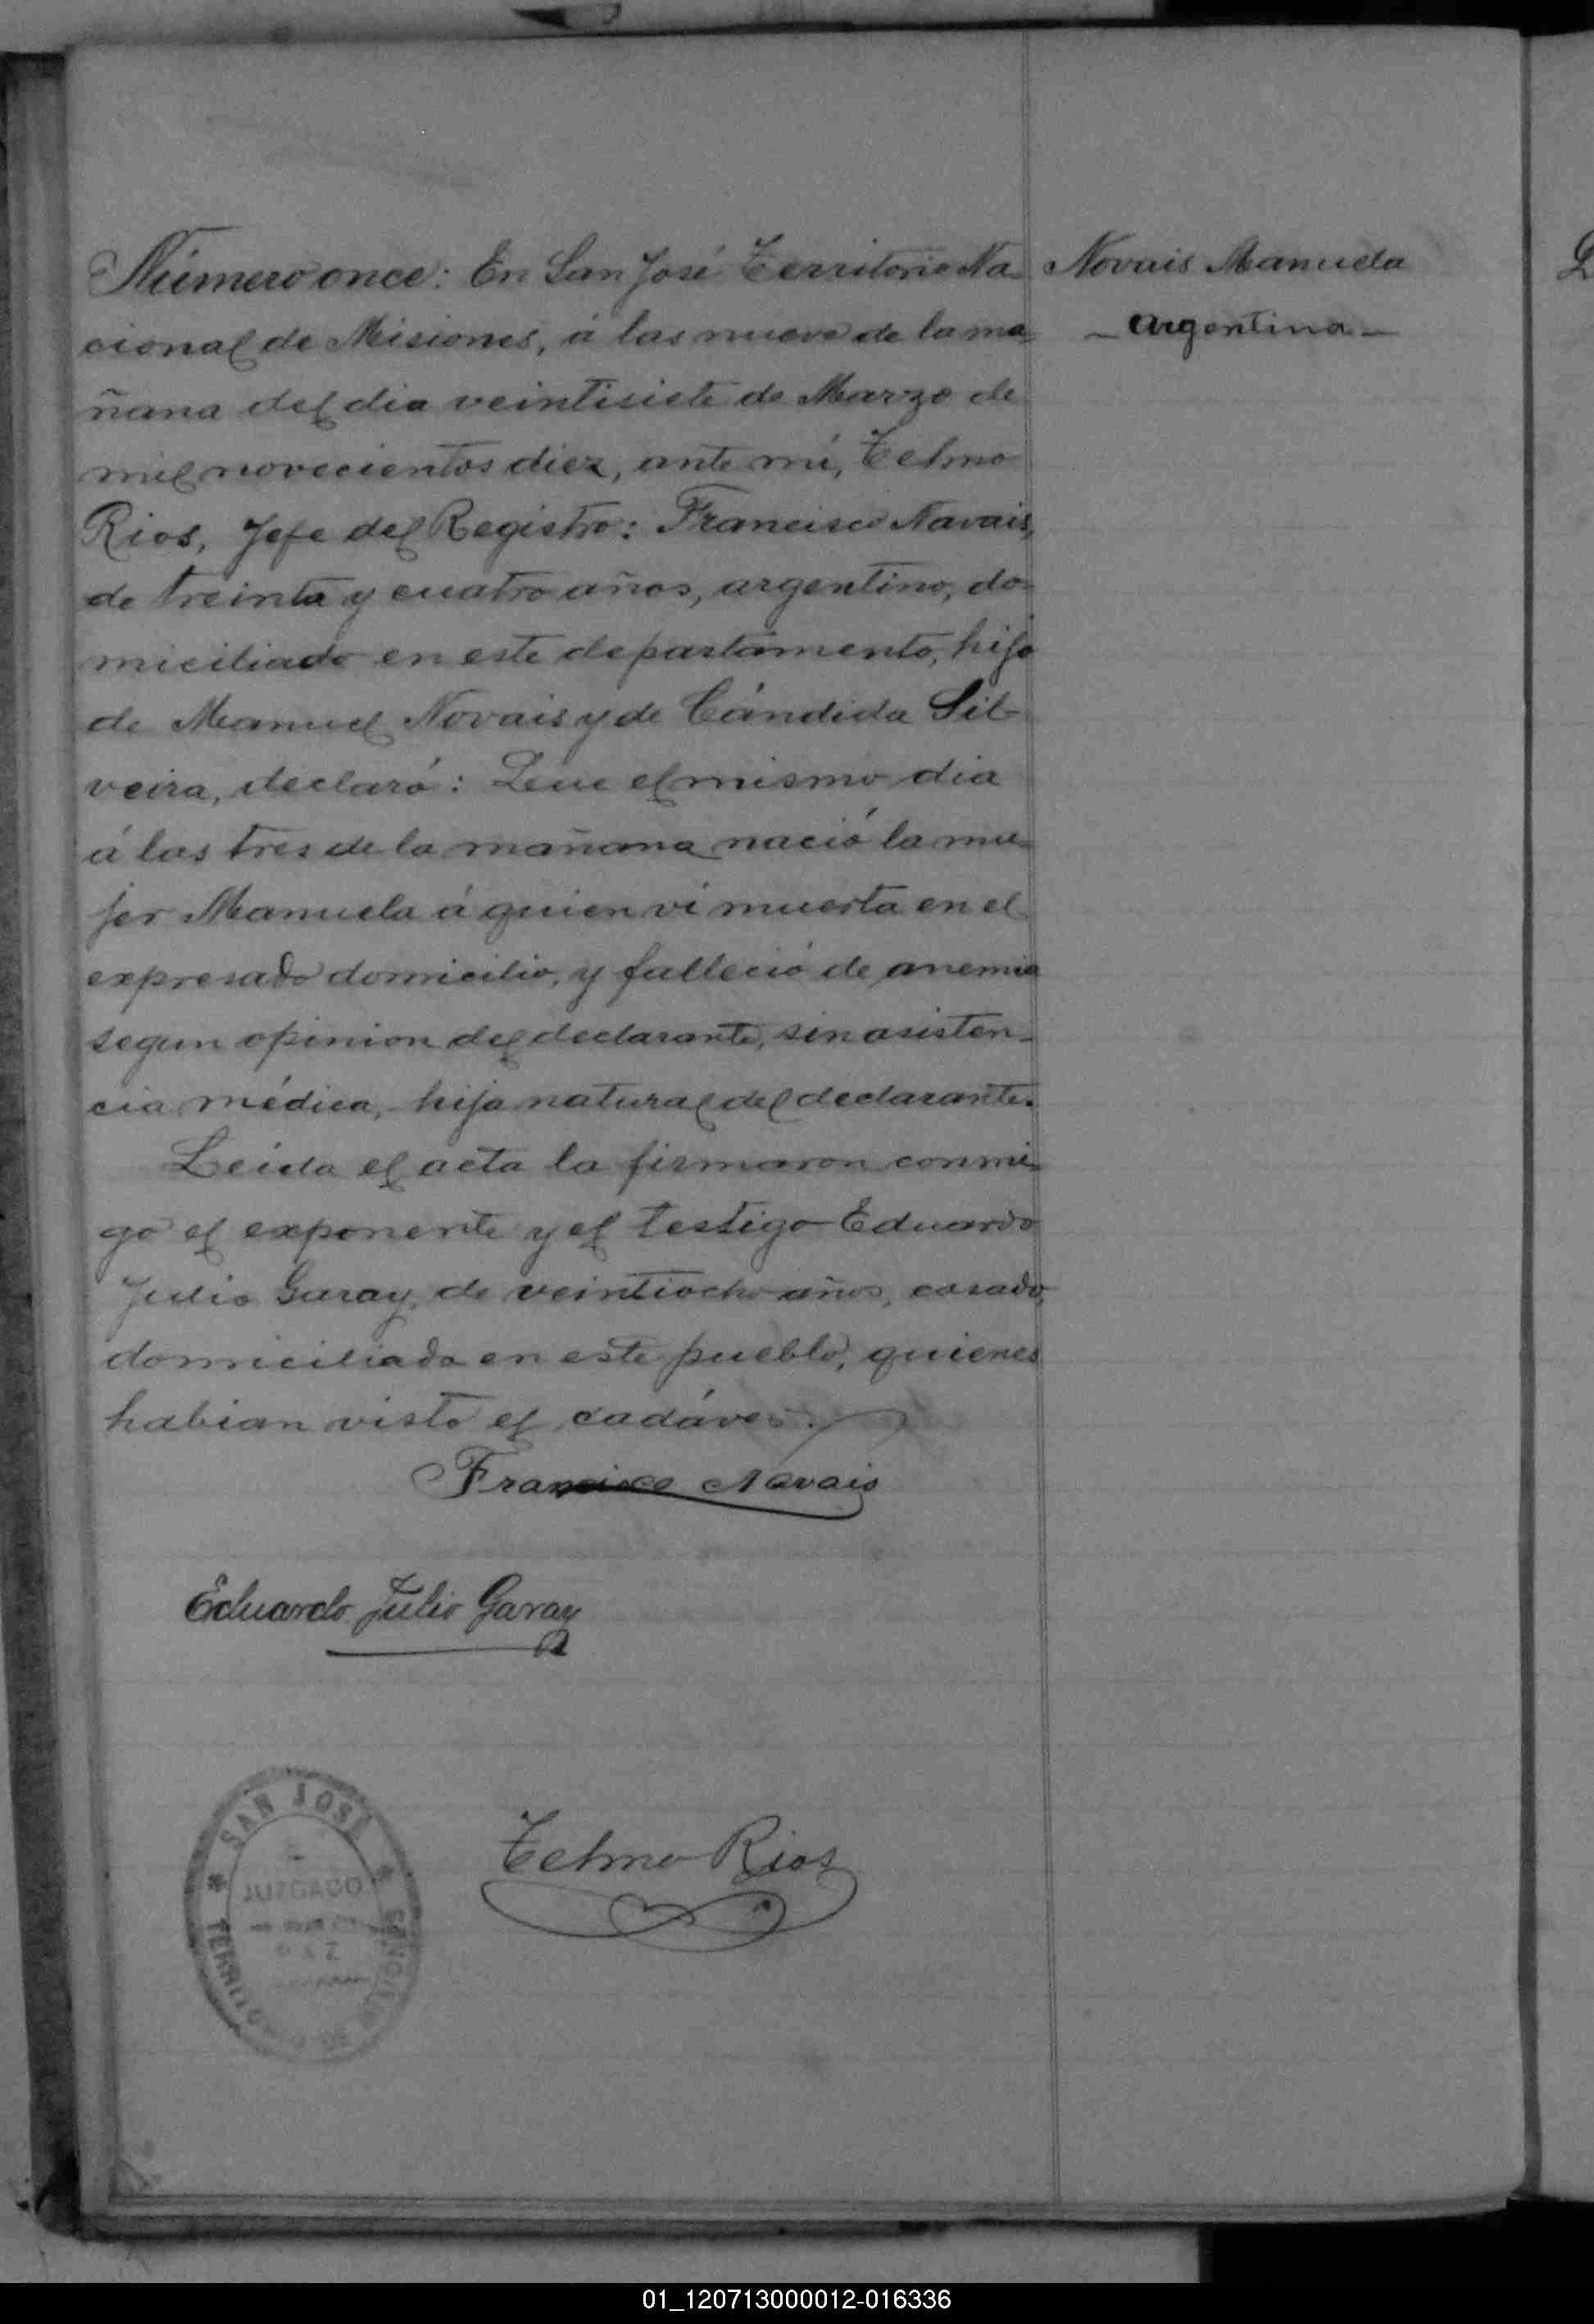 Número once: En San José Territorio Na-
cional de Misiones, á las nueve de la ma-
ñana del dia veintisiete de Marzo de
mil novecientos diez, ante mí, Telmo
Rios, Jefe del Registro: Francisco Navais,
de treinta y cuatro años, argentino, do-
miciliado en este departamento, hijo
de Manuel Novais y de Cándida Sil-
veira, declaró: Que el mismo dia
á las tres de la mañana nació la mu-
jer Manuela á quien ví muerta en el
expresado domicilio, y falleció de anemia
segun opinion del declarante, sin asisten-
cia médica, hija natural del declarante.
Leida el acta la firmaron conmi-
go el exponente y el testigo Eduardo
Julio Garay, de veintiocho años, casado,
domiciliado en este pueblo, quienes
habian visto el cadáver.
Francisco Novais
Eduardo Julio Garay
Telmo Rios
SAN JOSÉ
JUZGADO
PAZ
TERRITORIO DE MISIONES
Novais Manuela
- Argentina -
01_120713000012-016336